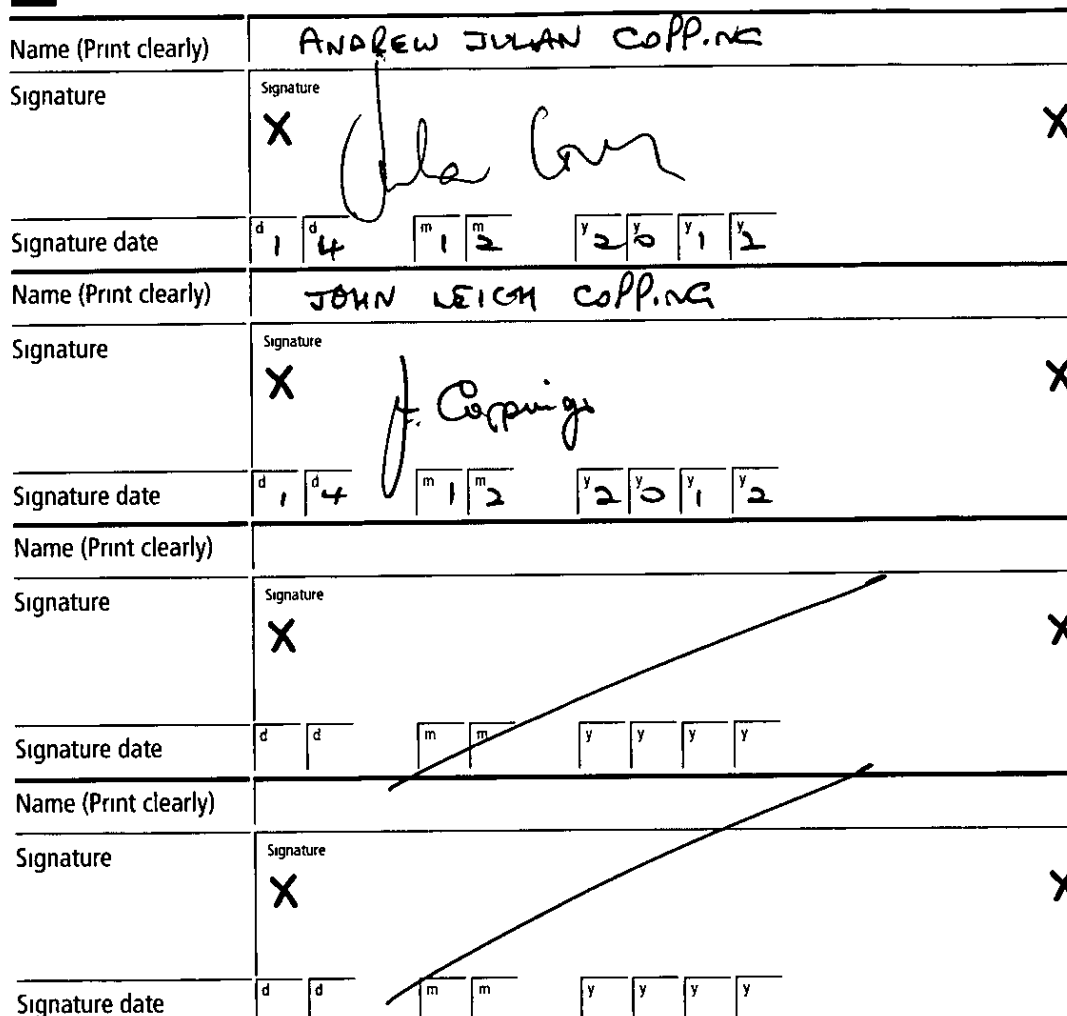 Name (Print clearly) ANDREW JULIAN COPPING
Signature Signature
X X
Signature date d 1 d 4 m 1 m 2 y 2 y 0 y 1 y 2
Name (Print clearly) JOHN LEIGH COPPING
Signature Signature
X J. Copping X
Signature date d 1 d 4 m 1 m 2 y 2 y 0 y 1 y 2
Name (Print clearly)
Signature Signature
X X
Signature date d d m m y y y y
Name (Print clearly)
Signature Signature
X X
Signature date d d m m y y y y